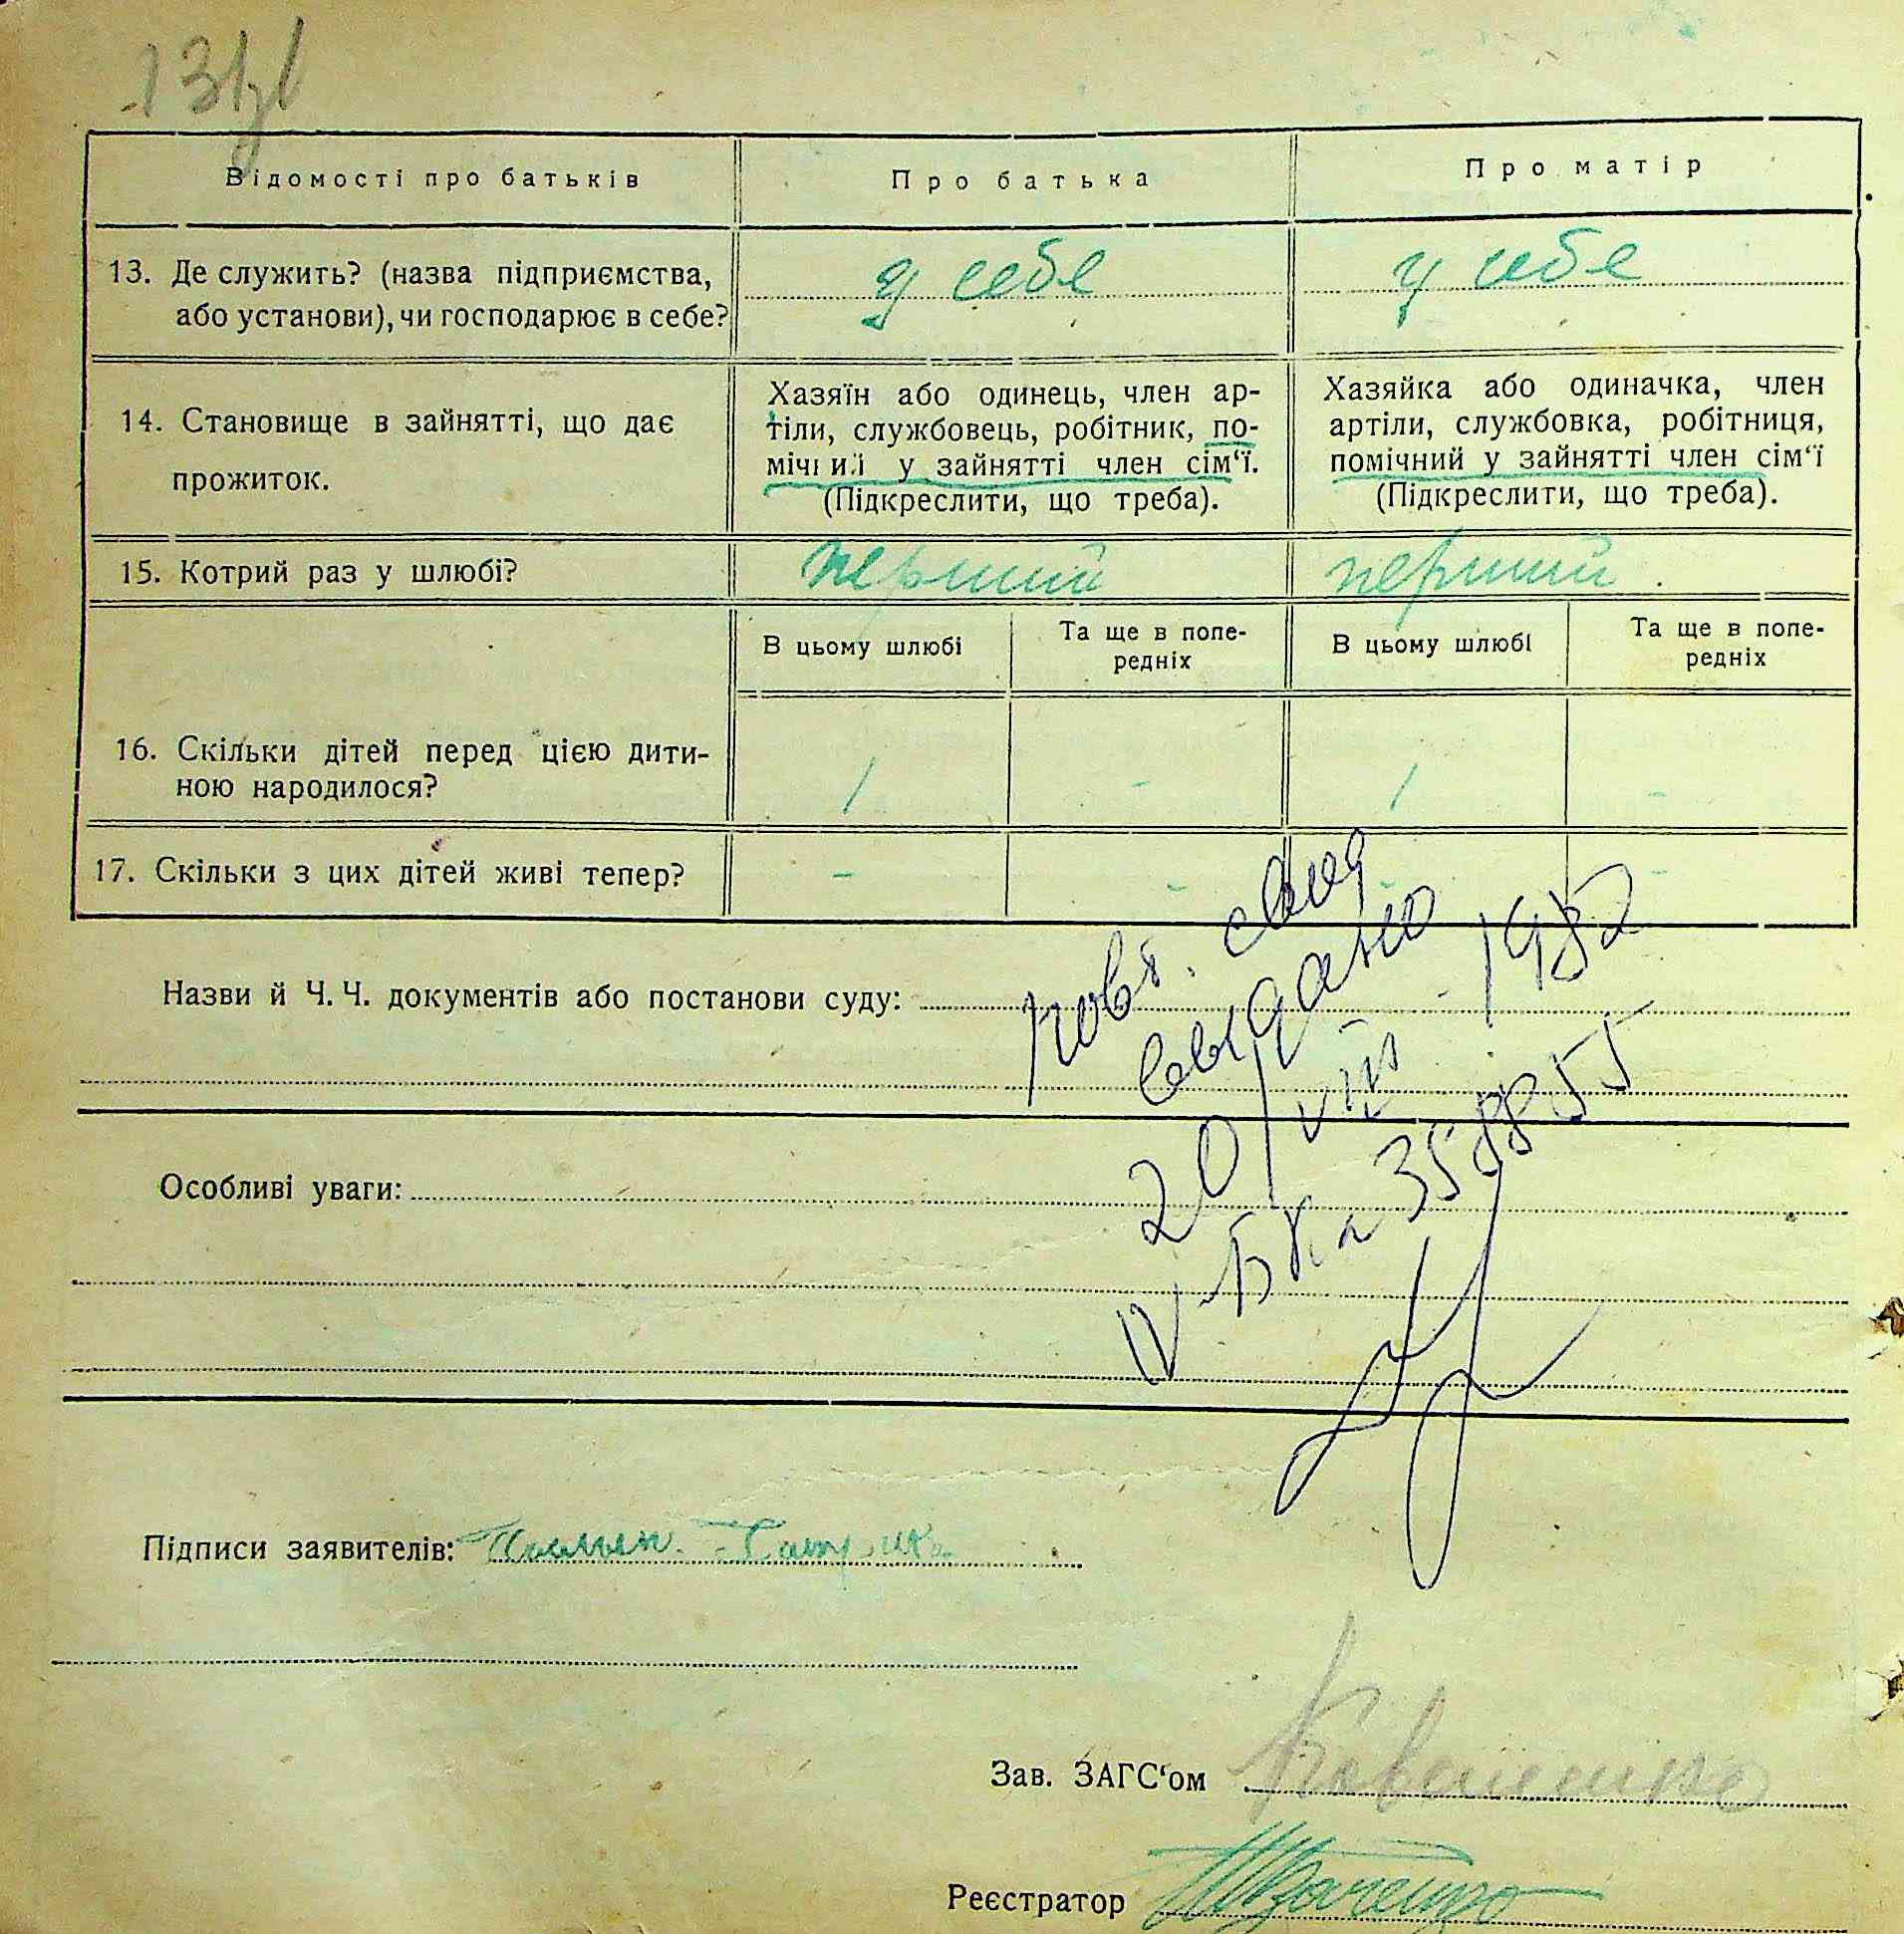 Відомості про батьків
Про батька
Про матір
13. Де служить? (назва підприємства,
або установи), чи господарює в себе?
у себе
у себе
14. Становище в зайнятті, що дає
прожиток.
Хазяїн або одинець, член ар-
тіли, службовець, робітник, по-
мічний у зайнятті член сім‘ї.
(Підкреслити, що треба).
Хазяйка або одиначка, член
артіли, службовка, робітниця,
помічний у зайнятті член сім‘ї
(Підкреслити, що треба).
15. Котрий раз у шлюбі?
перший
перший
В цьому шлюбі
Та ще в попе-
редніх
В цьому шлюбі
Та ще в попе-
редніх
16. Скільки дітей перед цією дити-
ною народилося?
1
-
1
-
17. Скільки з цих дітей живі тепер?
-
-
-
-
Назви й Ч. Ч. документів або постанови суду:
повт. свид
выдано
20/VIII - 1982
IV-БК № 358855
Особливі уваги:
Підписи заявителів:
Зав. ЗАГС‘ом
Реєстратор